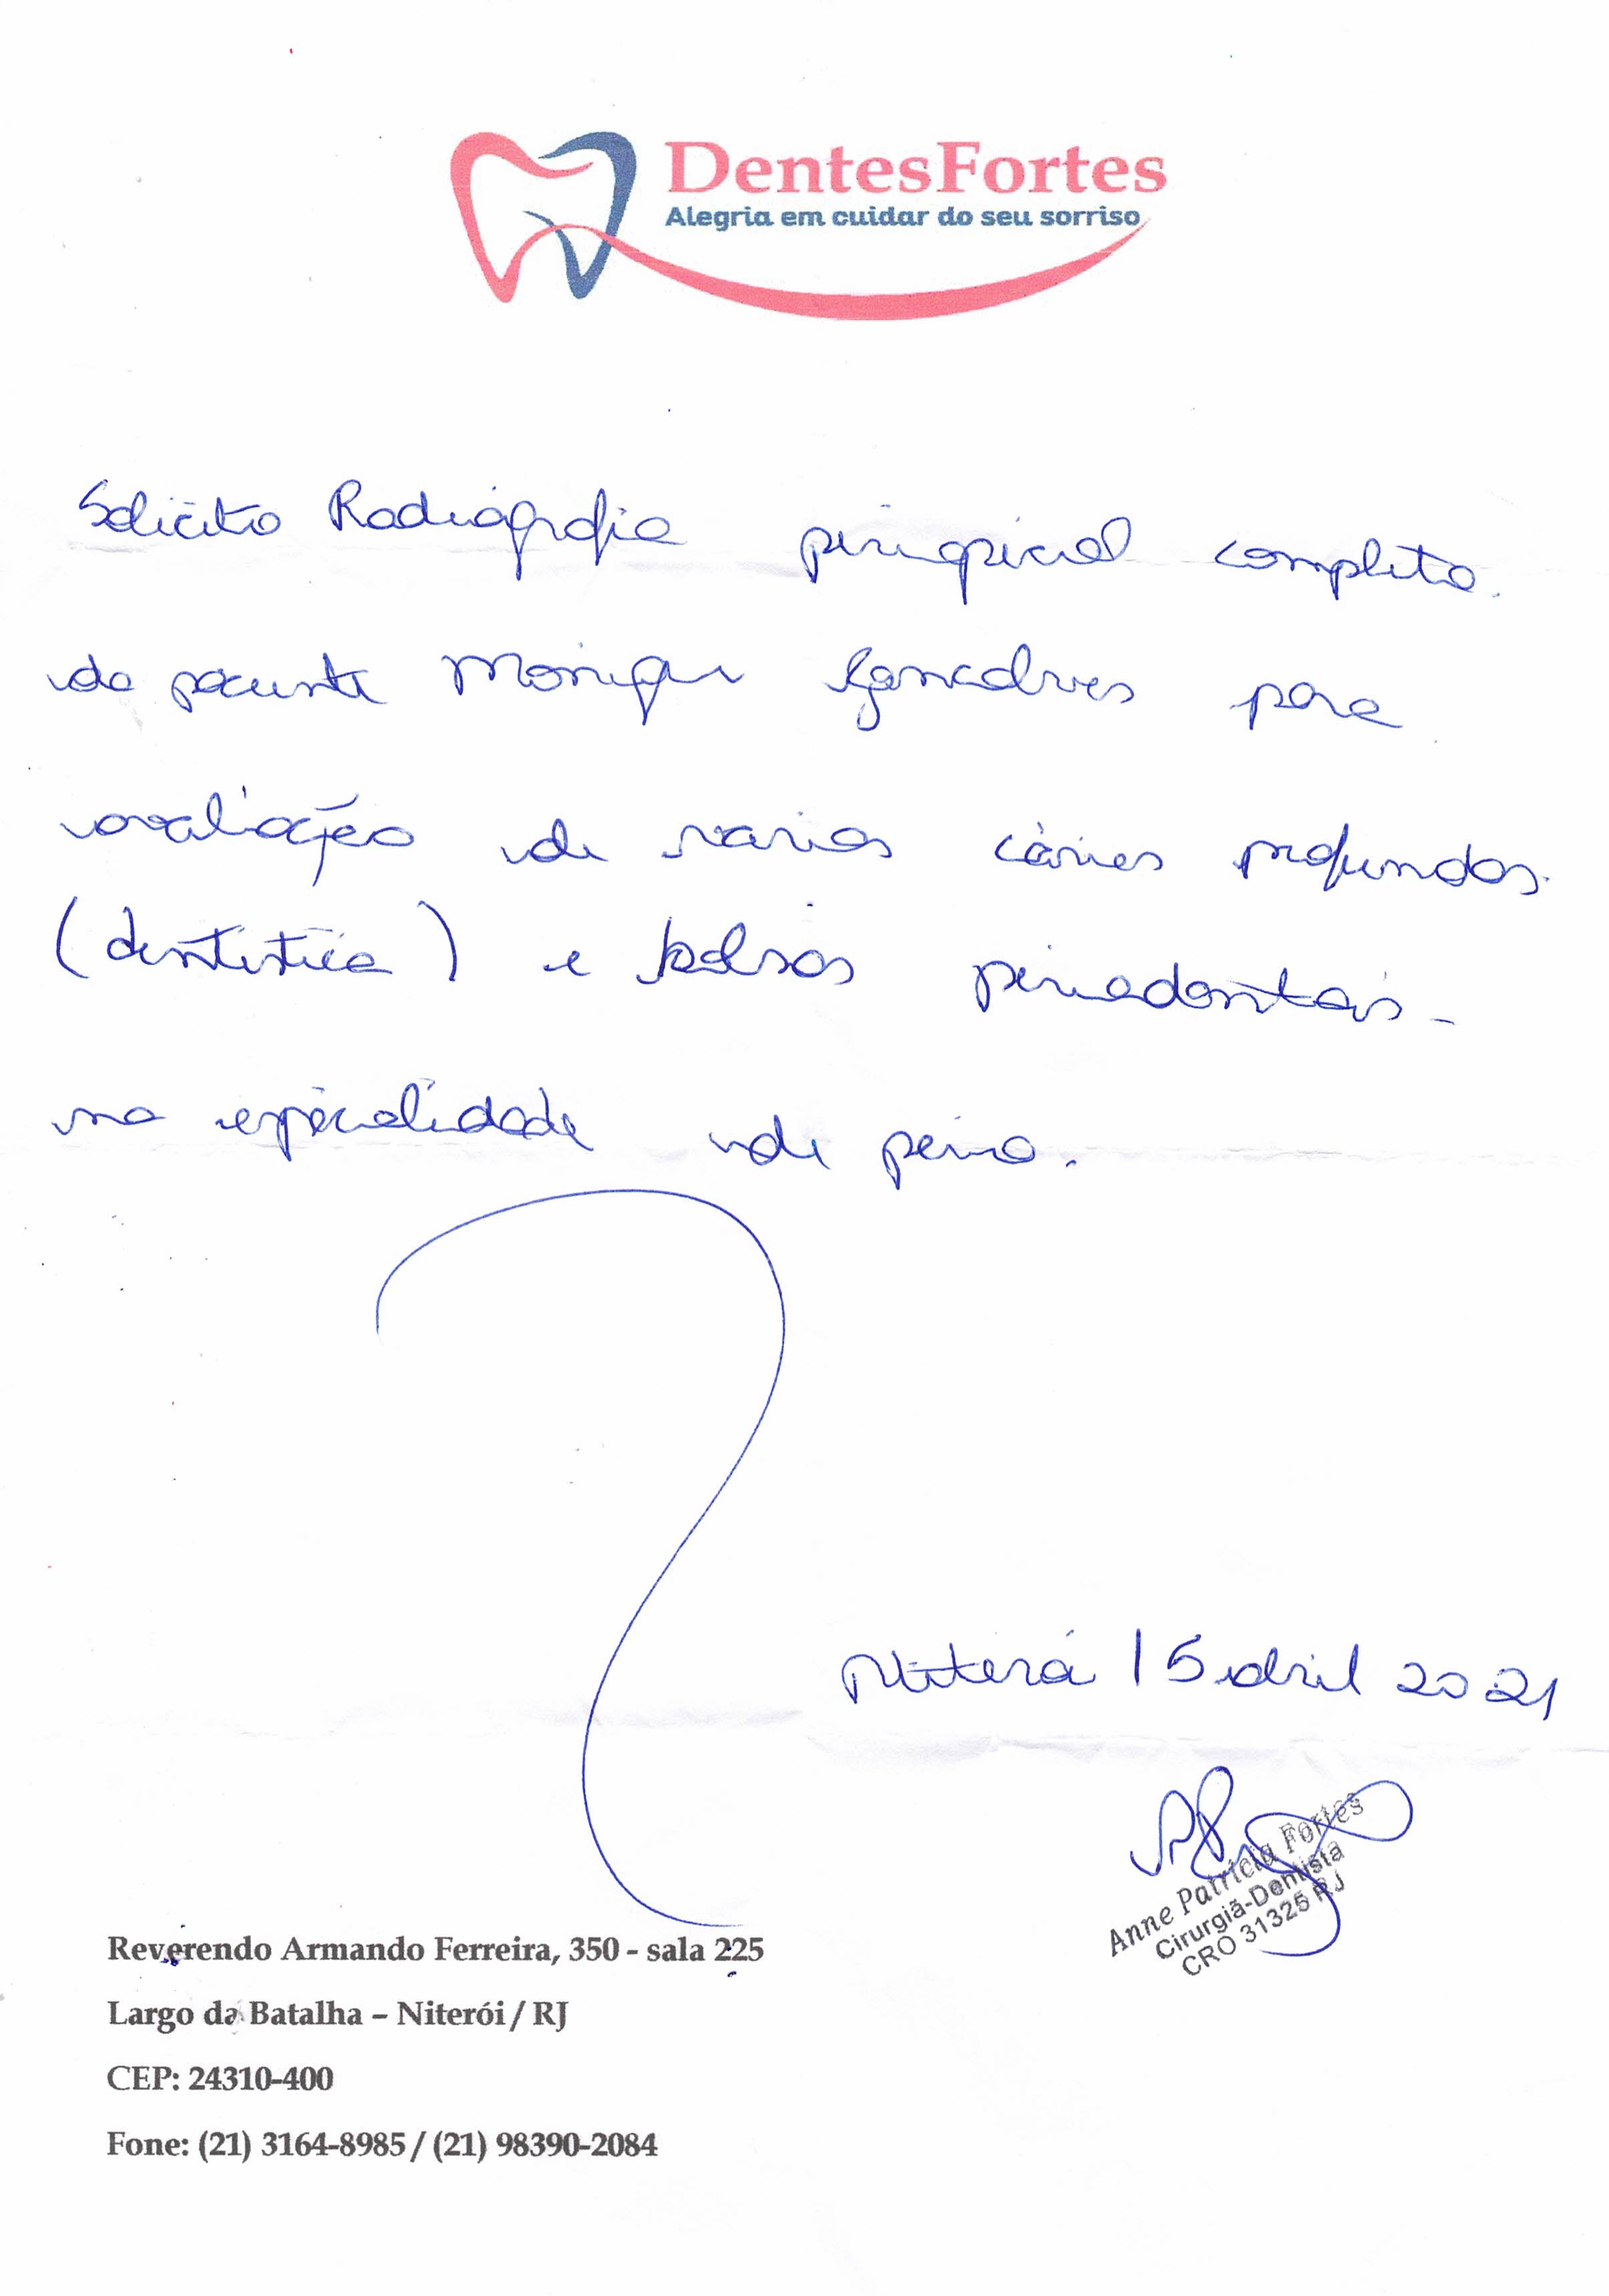 DentesFortes
Alegria em cuidar do seu sorriso
Solicito Radiografia periapical completa.
da paciente Monique Gonçalves para
avaliação de varias cáries profundas.
(dentistica) e bolsas periodontais -
na especialidade de perio.
Niterói 15 abril 2021
Anne Patricia Fortes
Cirurgiã-Dentista
CRO 31325 RJ
Reverendo Armando Ferreira, 350 - sala 225
Largo da Batalha – Niterói / RJ
CEP: 24310-400
Fone: (21) 3164-8985 / (21) 98390-2084